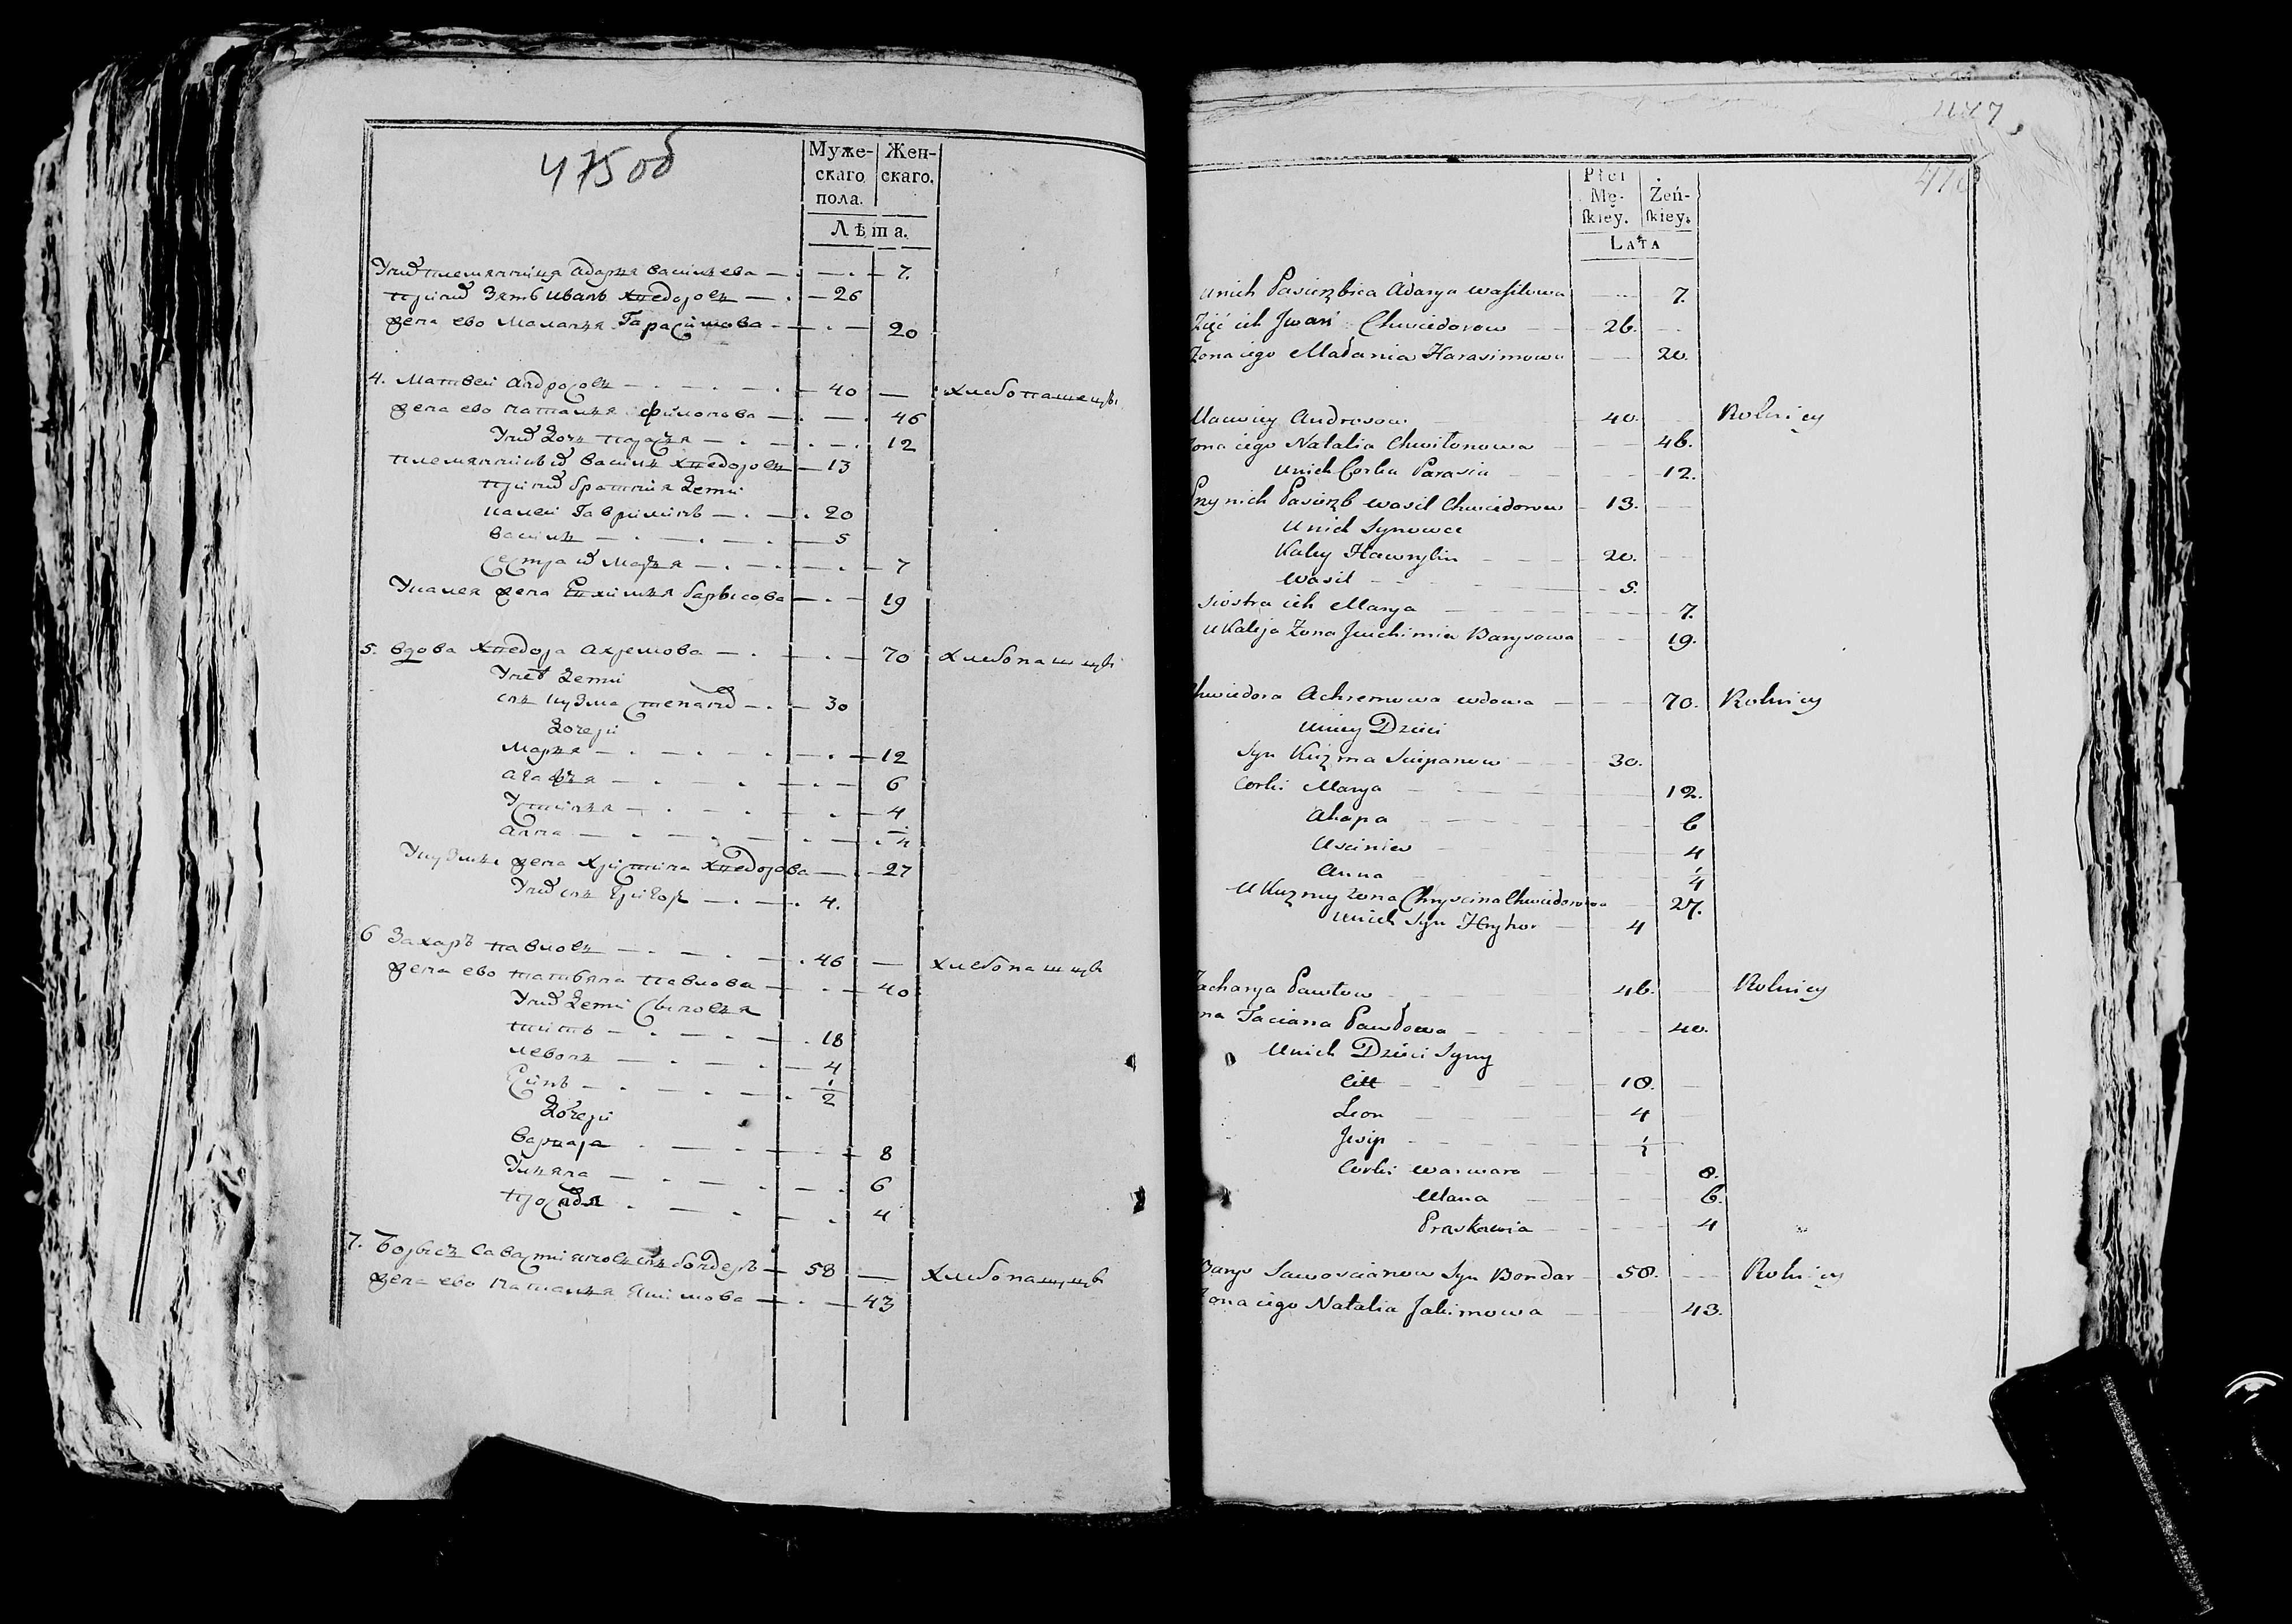 475 об
Муже-
скаго
пола.
Жен-
скаго.
Лѣта.
Уних племянница адаря васильева 7.
при них зять иванъ хведоровъ 26
жена ево маланья Гарасимова 20
4. Матвеи андросовъ 40 хлебопашецъ
жена ево наталья филонова 46
Уних дочь парася 12
племянникъ василь хведоровъ 13
при них братния дети
калеи Гаврилинъ 20
василь 5
Сестра их марья 7
Укалея жена Евхимья барысова 19
5. вдова хведора ахремова 70 хлебопашцы
Унеи дети
снъ кузма степанов 30
дочери
Марья 12
агафья 6
Устинья 4
анна 1/4
Укузмы жена христина хведорова 27
Уних снъ григоръ 4.
6 Захаръ павловъ 46 хлебопашцы
жена ево татьяна павлова 40
Уних дети Сыновья
титъ 18
левонъ 4
Есипъ 1/2
дочери
варвара 8
Ульяна 6
4
7. Борысъ Савастияновъ снъ бондаръ 58 хлебопашцы
жена ево наталья Якимова 43
447
476
Płci
Mę-
skiey.
Żeń-
skiey.
LATA
unich Pasierzbica Adarya Wasilowa 7.
Zięć ich Jwan Chwiedorow 26.
Zona iego Małania Harasimowa 20.
Maciey Androsow 40. Rolnicy
Zona iego Natalia Chwiłonowa 46.
unich Corka Parasia 12.
Przy nich Pasierzb Wasil Chwiedorow 13.
unich Synowce
Kaley Hawrylin 20.
Wasil 5.
Siostra ich Marya 7.
u Kaleja Zona Jewchimia Barysowa 19.
Chwiedora Achremowa wdowa 70. Rolnicy
uniey Dzieci
Syn Kuzma Sciepanow 30.
Corki Marya 12.
Ahapa 6
Usciniia 4
Anna 1/4
u Kuzmy Zona Chryscina Chwiedorowa 27.
unich Syn Hryhor 4
Zacharya Pawłow 46. Rolnicy
Taciana Pawłowa 40.
unich Dzieci Syny
Citt 18.
Leon 4
Jesip 1/2
Corki Warwara 8.
Ulana 6.
Praskawia 4
Barys Sawoscianow Syn Bondar 58. Rolnicy
Zona iego Natalia Jakimowa 43.